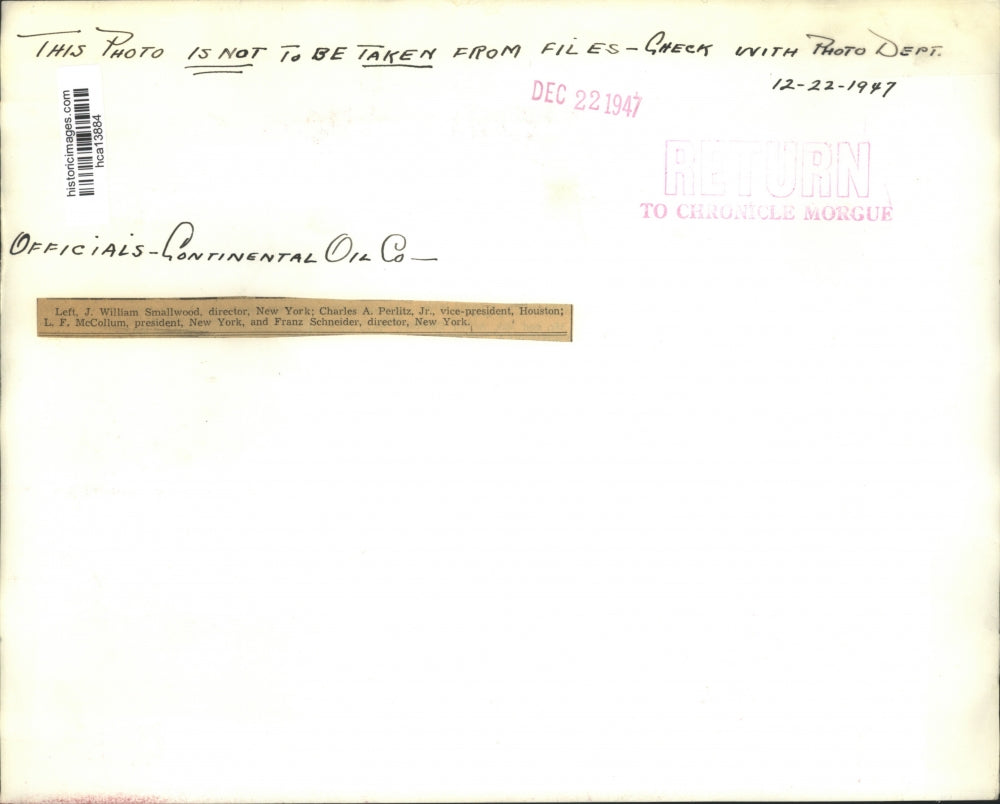 THIS PHOTO IS NOT TO BE TAKEN FROM FILES - CHECK WITH PHOTO DEPT.
12-22-1947
DEC 22 1947
historicimages.com
hca13884
RETURN
TO CHRONICLE MORGUE
OFFICIALS - CONTINENTAL OIL CO —
Left, J. William Smallwood, director, New York; Charles A. Perlitz, Jr., vice-president, Houston;
L. F. McCollum, president, New York, and Franz Schneider, director, New York.